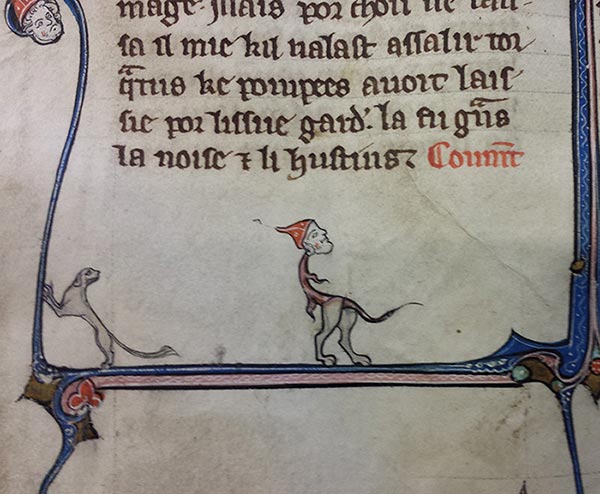 mage. Mais por chou ne lais-
sa il mie kil nalast assalir tor
qᵃtus ke pompees auoit lais-
sie por lissue gard'. la fu gᵃns
la noise ⁊ li hustins Coum̄t